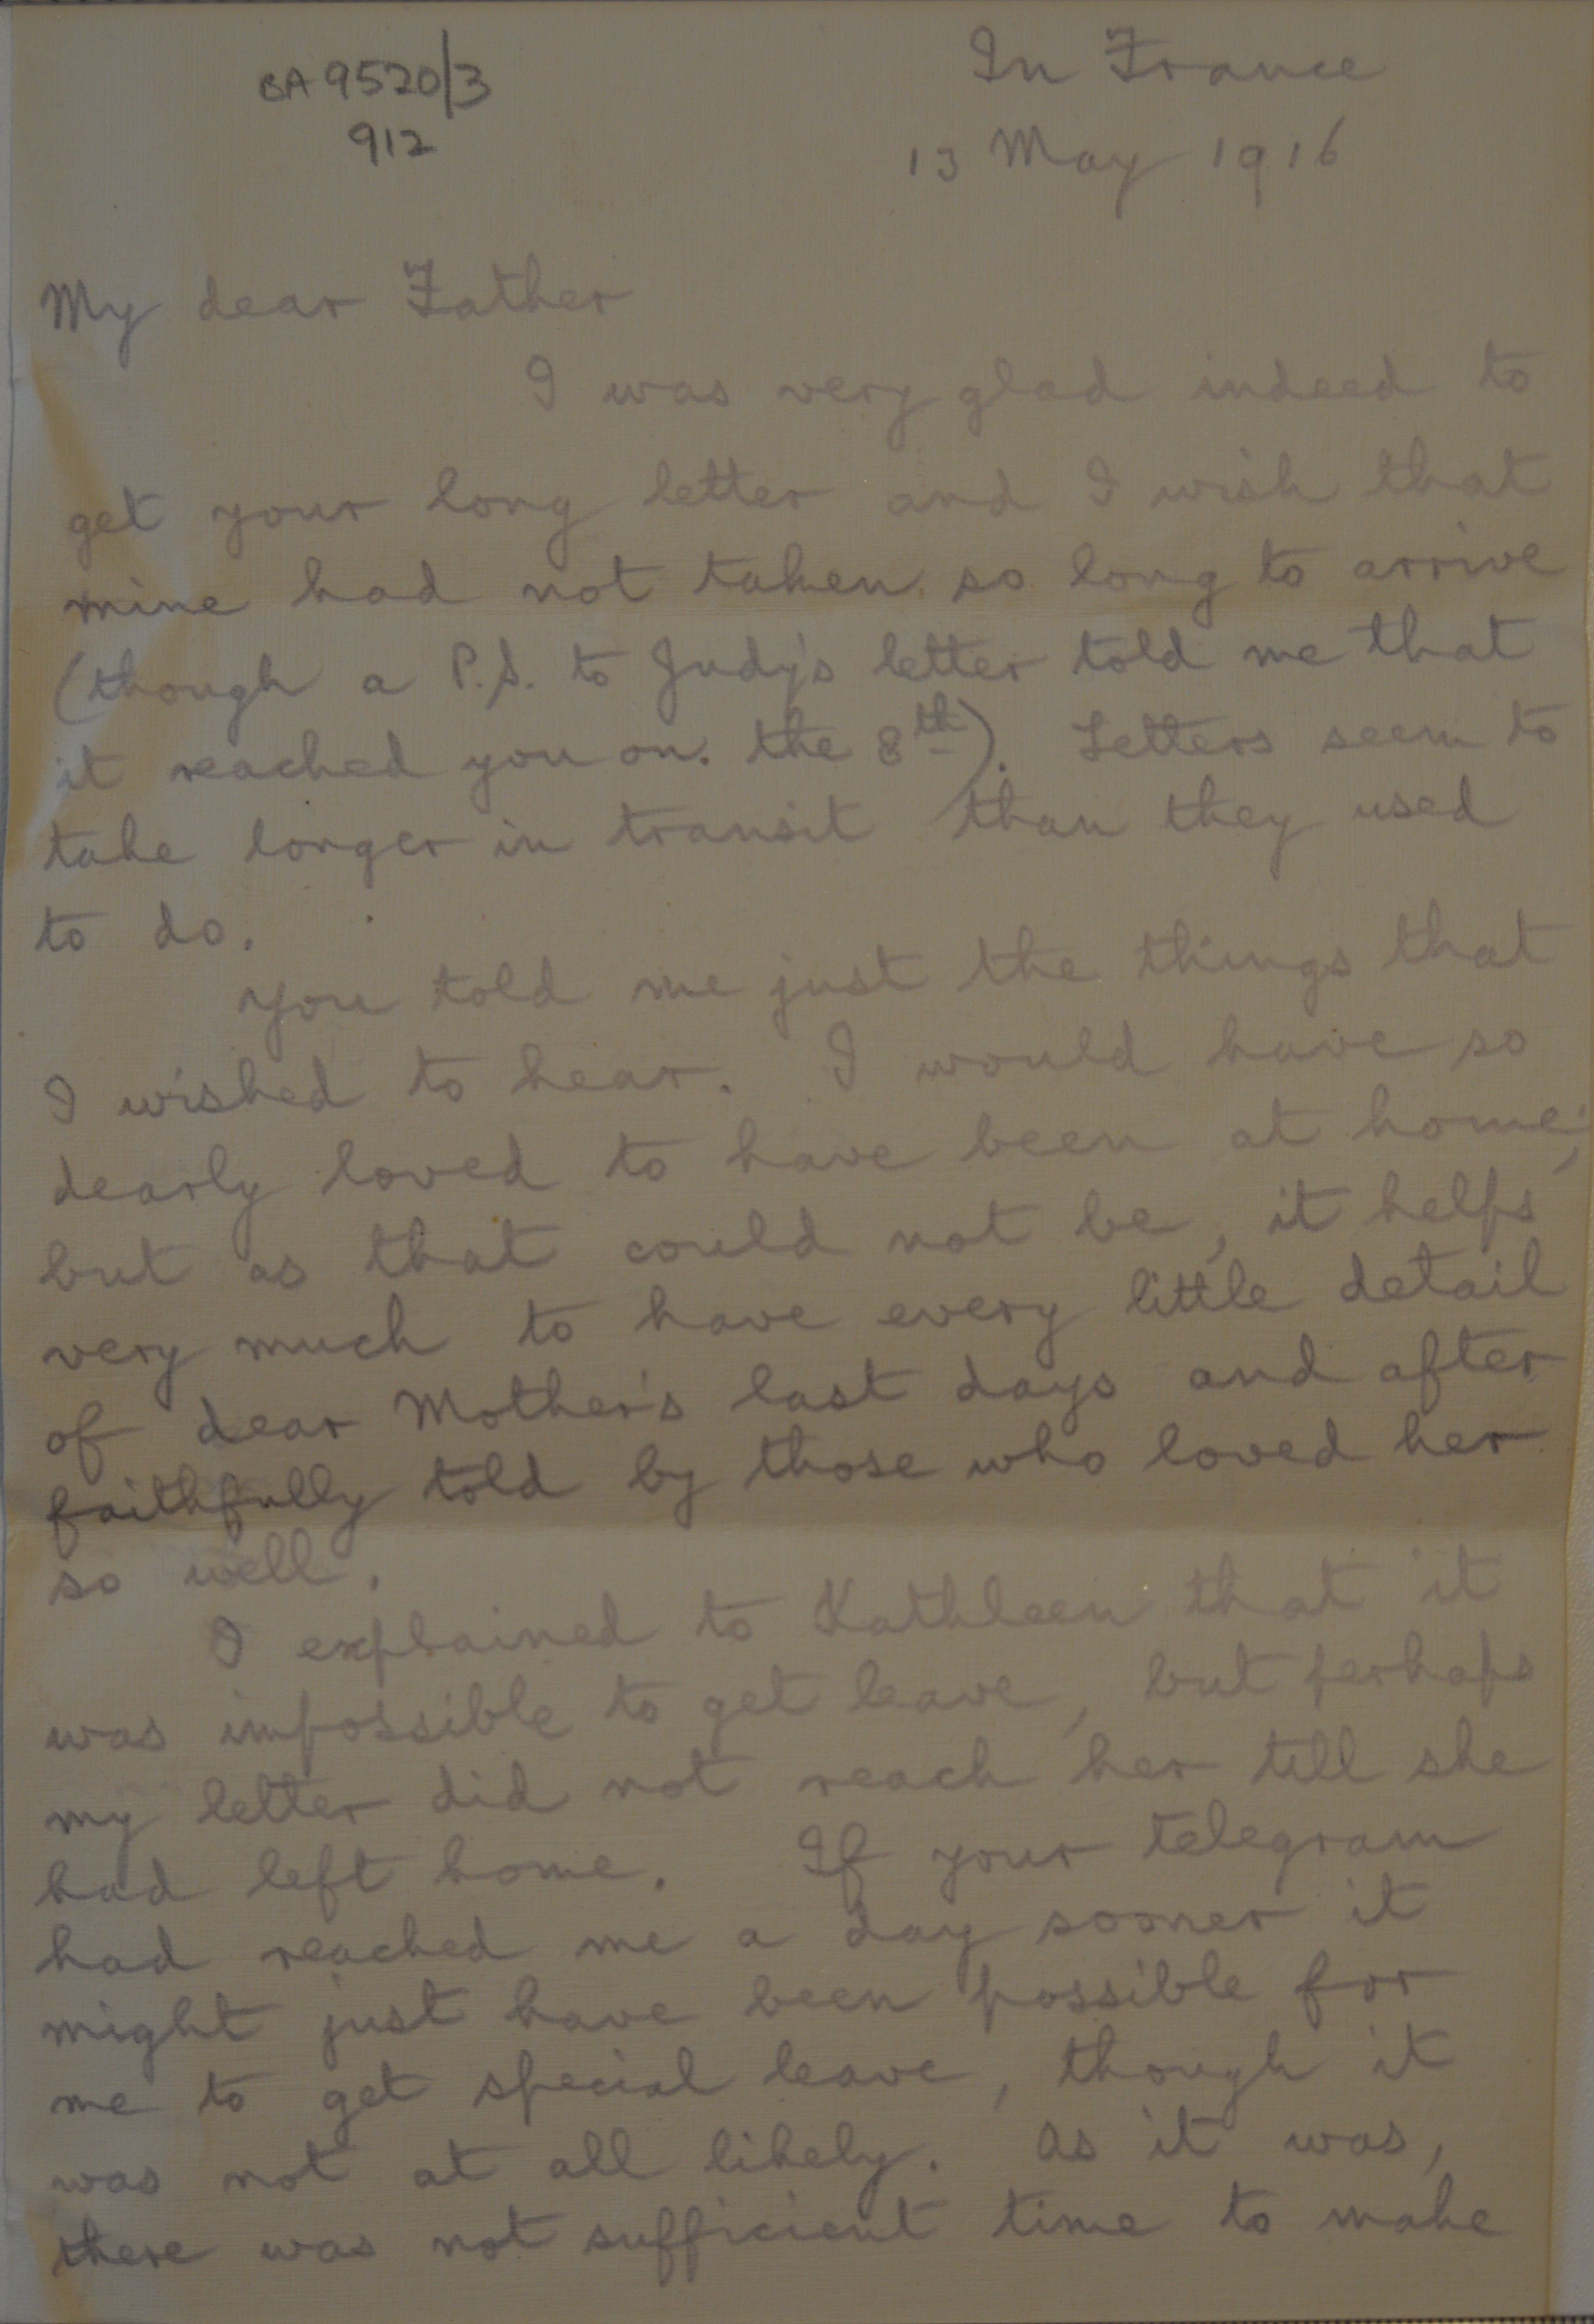 BA 9520/3
912
In France
13 May 1916
My dear Father
I was very glad indeed to
get your long letter and I wish that
mine had not taken so long to arrive
(though a P.S. to Judy's letter told me that
it reached you on. the 8th). Letters seem to
take longer in transit than they used
to do.
You told me just the things that
I wished to hear. I would have so
dearly loved to have been at home;
but as that could not be, it helps
very much to have every little detail
of dear Mother's last days and after
faithfully told by those who loved her
so well.
I explained to Kathleen that it
was impossible to get leave, but perhaps
my letter did not reach her till she
had left home. If your telegram
had reached me a day sooner it
might just have been possible for
me to get special leave, though it
was not at all likely. As it was,
there was not sufficient time to make